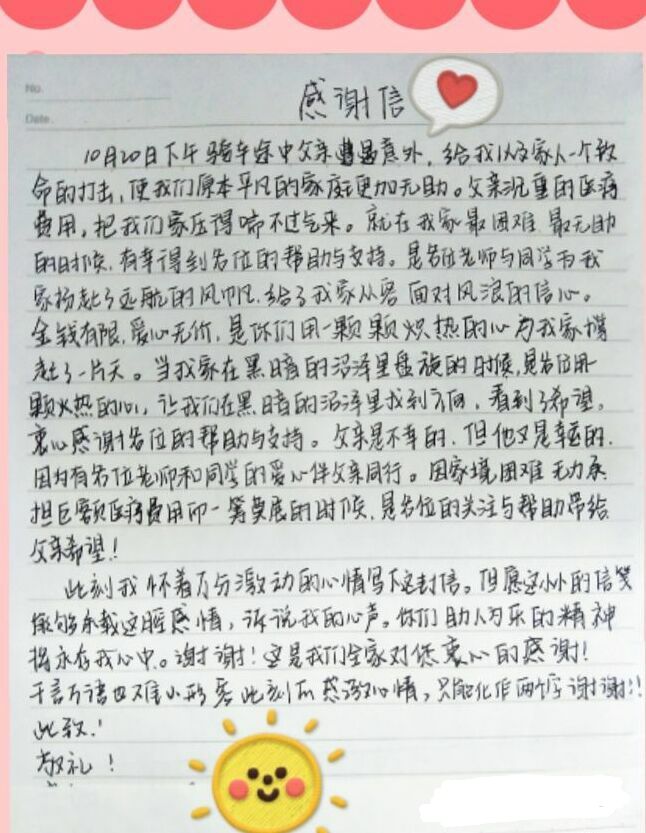 No.
Date.
感谢信
10月20日下午骑车途中父亲遭遇意外，给我以及家人一个致
命的打击，使我们原本平凡的家庭更加无助。父亲沉重的医疗
费用，把我们家压得喘不过气来。就在我家最困难 最无助
的时候，有幸得到各位的帮助与支持。是各位老师与同学为我
家扬起了远航的风帆，给了我家从容面对风浪的信心。
金钱有限，爱心无价，是你们用一颗颗炽热的心为我家撑
起了一片天。当我家在黑暗的沼泽里盘旋的时候，是各位用
颗火热的心，让我们在黑暗的沼泽里找到方向，看到了希望。
衷心感谢各位的帮助与支持。父亲是不幸的，但他又是幸运的，
因为有各位老师和同学的爱心伴父亲同行。因家境困难无力承
担巨额医疗费用而一筹莫展的时候，是各位的关注与帮助带给
父亲希望！
此刻我怀着万分激动的心情写下这封信。但愿这小小的信笺
能够承载这腔感情，诉说我的心声。你们助人为乐的精神
将永存我心中。谢谢！这是我们全家对您衷心的感谢！
千言万语也难以形容此刻的感激心情，只能化作两个字谢谢！！
此致！
敬礼！